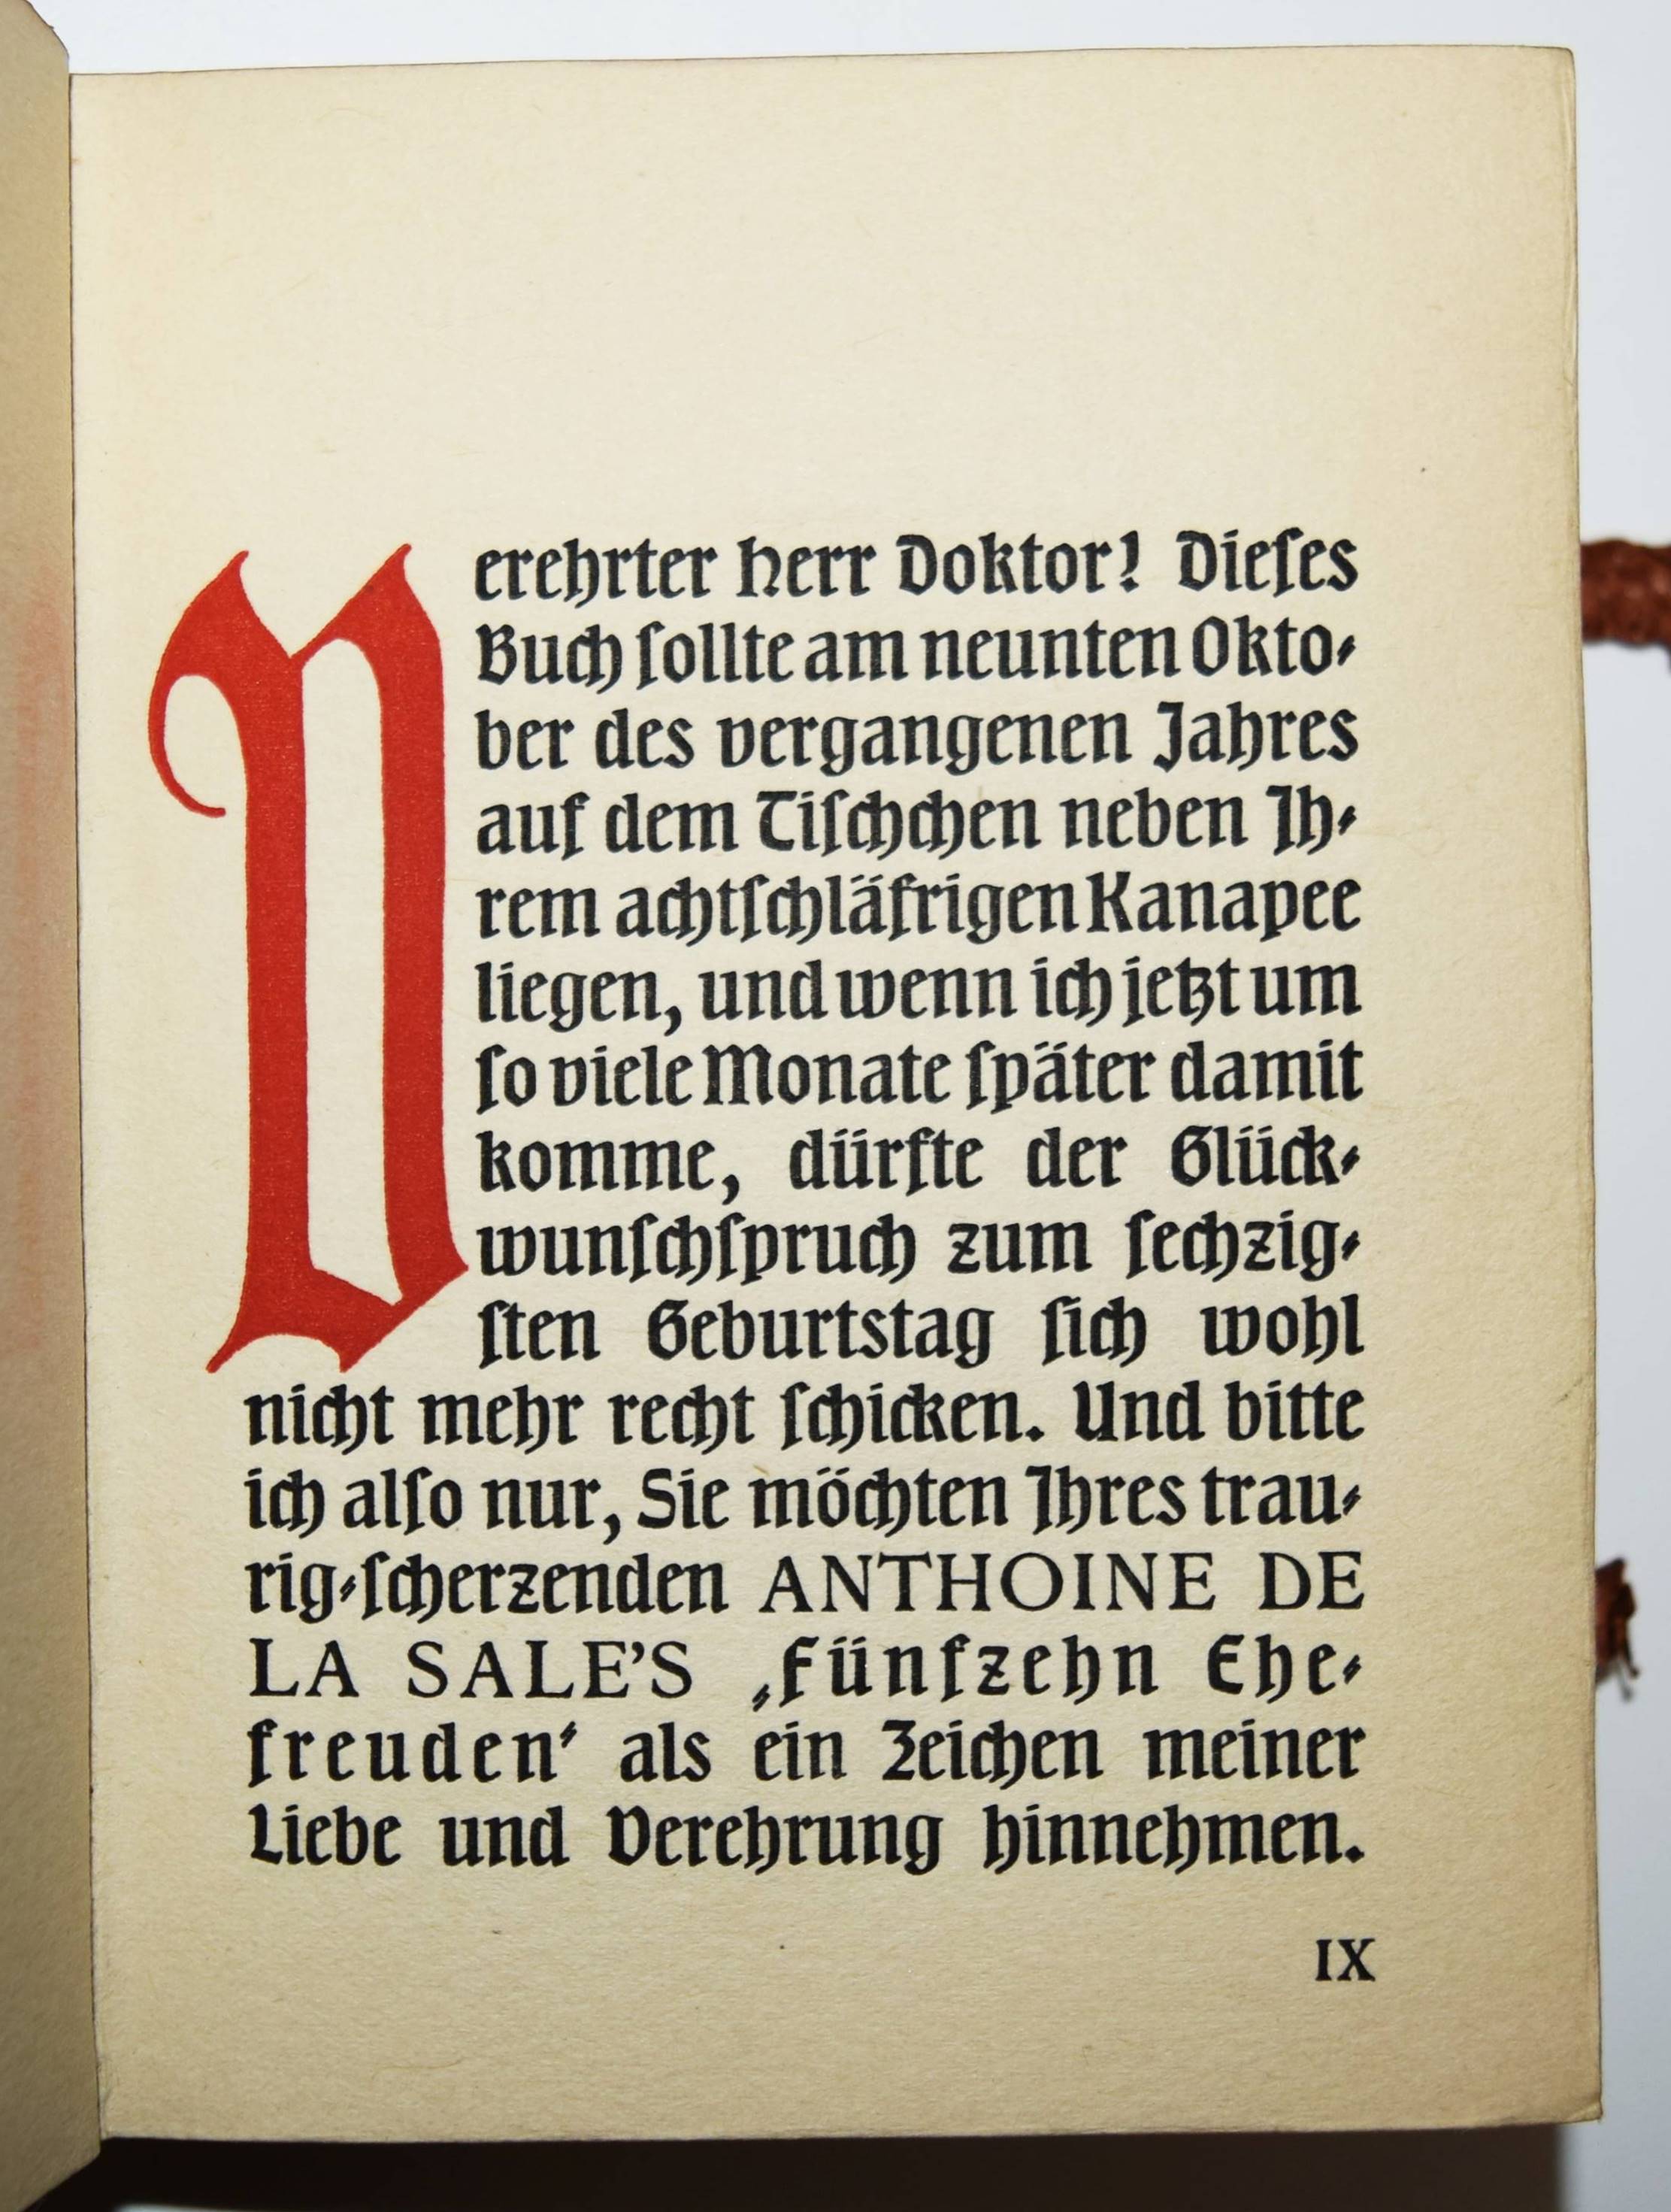 Verehrter Herr Doktor! Dieſes
Buch ſollte am neunten Okto⸗
ber des vergangenen Jahres
auf dem Tiſchchen neben Ih⸗
rem achtſchläfrigen Kanapee
liegen, und wenn ich jetzt um
ſo viele Monate ſpäter damit
komme, dürfte der Glück⸗
wunſchſpruch zum ſechzig⸗
ſten Geburtstag ſich wohl
nicht mehr recht ſchicken. Und bitte
ich alſo nur, Sie möchten Ihres trau⸗
rig⸗ſcherzenden ANTHOINE DE
LA SALE’S ‚Fünfzehn Ehe⸗
freuden‘ als ein Zeichen meiner
Liebe und Verehrung hinnehmen.
IX